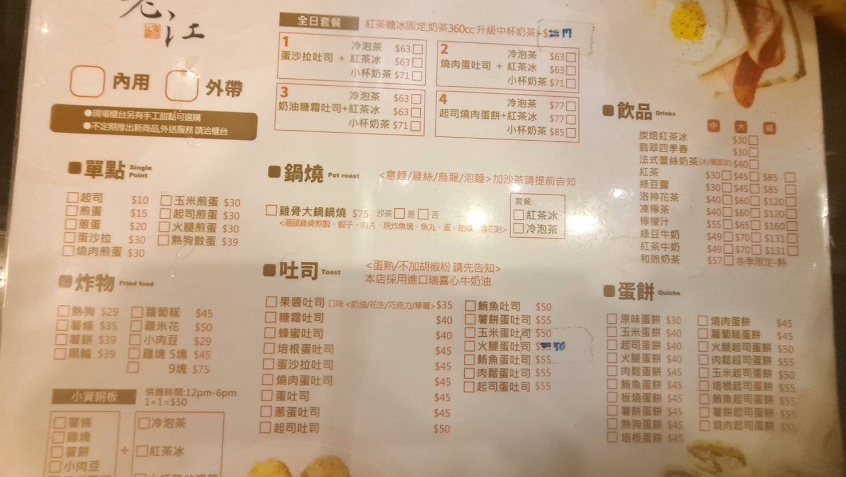 老江
內用 外帶
●現場櫃台另有手工甜點可選購
●不定期推出新商品,外送服務 請洽櫃台
全日套餐 紅茶糖冰固定,奶茶360cc 升級中杯奶茶+$
1 蛋沙拉吐司 +
冷泡茶 $63
紅茶冰 $63
小杯奶茶 $71
2 燒肉蛋吐司 +
冷泡茶 $63
紅茶冰 $63
小杯奶茶 $71
3 奶油糖霜吐司+
冷泡茶 $63
紅茶冰 $63
小杯奶茶 $71
4 起司燒肉蛋餅+
冷泡茶 $77
紅茶冰 $77
小杯奶茶 $85
單點 Single Point
起司 $10
煎蛋 $15
蔥蛋 $20
蛋沙拉 $30
燒肉煎蛋 $30
玉米煎蛋 $30
起司煎蛋 $30
火腿煎蛋 $30
熱狗散蛋 $39
鍋燒 Pot roast <意麵/雞絲/烏龍/泡麵>加沙茶請提前告知
雞骨大鍋鍋燒 $75 沙茶 是 否
套餐:
紅茶冰
冷泡茶
炸物 Fried food
熱狗 $29
薯條 $35
薯餅 $39
黑輪 $39
蘿蔔糕 $45
雞米花 $50
小肉豆 $29
雞塊 5塊 $45
9塊 $75
吐司 Toast <蛋熟/不加胡椒粉 請先告知>
本店採用進口瑞喜心牛奶油
果醬吐司 口味<奶油/花生/巧克力/草莓> $35
糖霜吐司 $40
蜂蜜吐司 $40
培根蛋吐司 $45
蛋沙拉吐司 $45
燒肉蛋吐司 $45
蛋吐司 $45
蔥蛋吐司 $45
起司吐司 $50
鮪魚吐司 $50
薯餅蛋吐司 $55
玉米蛋吐司 $50
火腿蛋吐司 50
鮪魚蛋吐司 $55
肉鬆蛋吐司 $55
起司蛋吐司 $55
小資銅板 供應時間:12pm-6pm
1+1=$50
薯條
雞塊
薯餅
小肉豆
+
冷泡茶
紅茶冰
飲品 Drinks
中 大 瓶
炭焙紅茶冰 $30
翡翠四季春 $30
法式蕾絲奶茶 $40
紅茶 $30 $45 $85
綠豆露 $30 $45 $85
洛神花茶 $40 $60 $120
凍檸茶 $40 $60 $120
檸檬汁 $55 $65 $160
綠豆牛奶 $49 $70 $131
紅茶牛奶 $49 $70 $131
和煦奶茶 $57 冬季限定-熱
蛋餅 Quiche
原味蛋餅 $30
玉米蛋餅 $40
起司蛋餅 $40
火腿蛋餅 $40
肉鬆蛋餅 $45
鮪魚蛋餅 $45
板燒蛋餅 $45
薯餅蛋餅 $45
熱狗蛋餅 $45
培根蛋餅 $45
燒肉蛋餅 $45
蘿蔔糕蛋餅 $45
火腿起司蛋餅 $50
肉鬆起司蛋餅 $55
玉米起司蛋餅 $50
培根起司蛋餅 $55
鮪魚起司蛋餅 $55
薯餅起司蛋餅 $55
燒肉起司蛋餅 $55